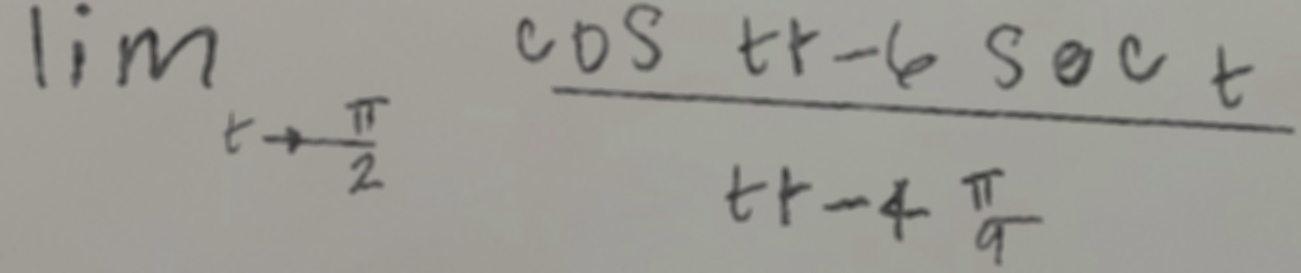 lim t→π/2 (cos tt-6 sec t)/(tt-4 π/9)